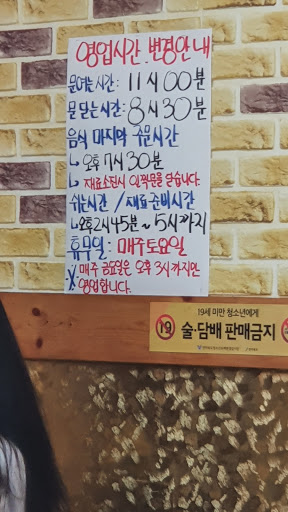 영업시간 변경안내
문여는시간: 11시00분
문닫는시간: 8시30분
음식 마지막 주문시간
↳ 오후 7시 30분
↳ 재료소진시 일찍문을 닫습니다.
쉬는시간 / 재료준비시간
↳ 오후2시45분 ~ 5시까지
휴무일: 매주토요일
※ 매주 금요일은 오후 3시까지만
영업합니다.
19세 미만 청소년에게
19 술·담배 판매금지